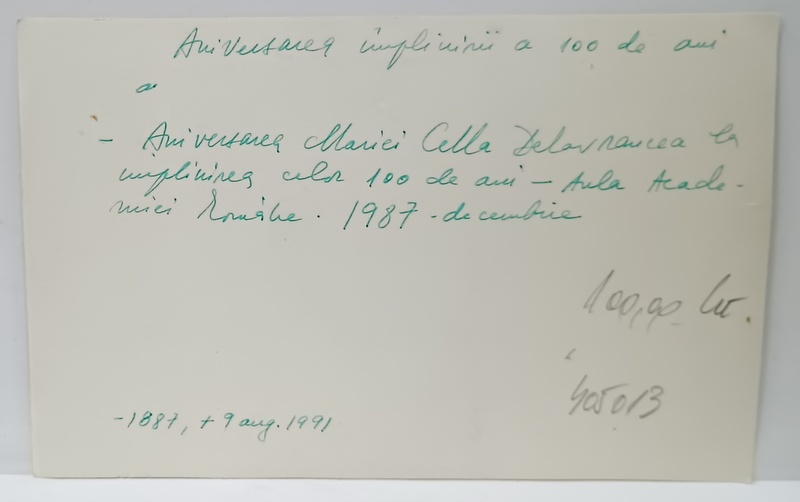 Aniversarea împlinirii a 100 de ani
a
- Aniversarea Mariei Cella Delavrancea la
împlinirea celor 100 de ani - Aula Acade-
miei Române. 1987 - decembrie
100,00 lei.
405013
- 1887, + 9 aug. 1991